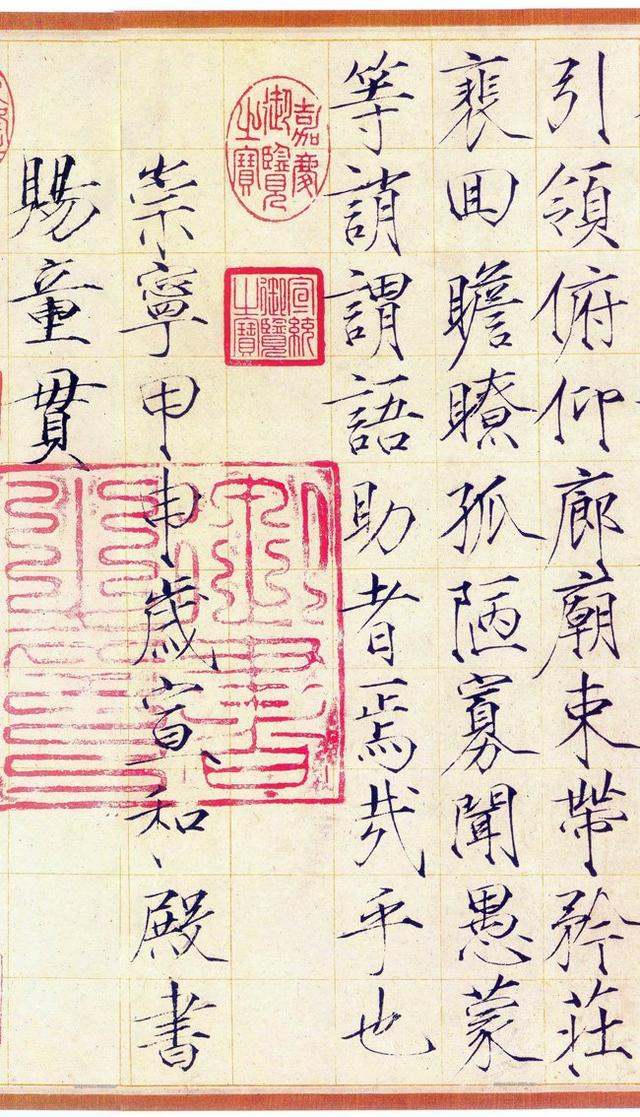 引領俯仰廊廟束帶矜莊
裵囬瞻瞭孤陋寡聞愚蒙
等誚謂語助者焉哉乎也
嘉慶御覽之寶
宣統御覽之寶
崇寧甲申歲宣和殿書
賜童貫